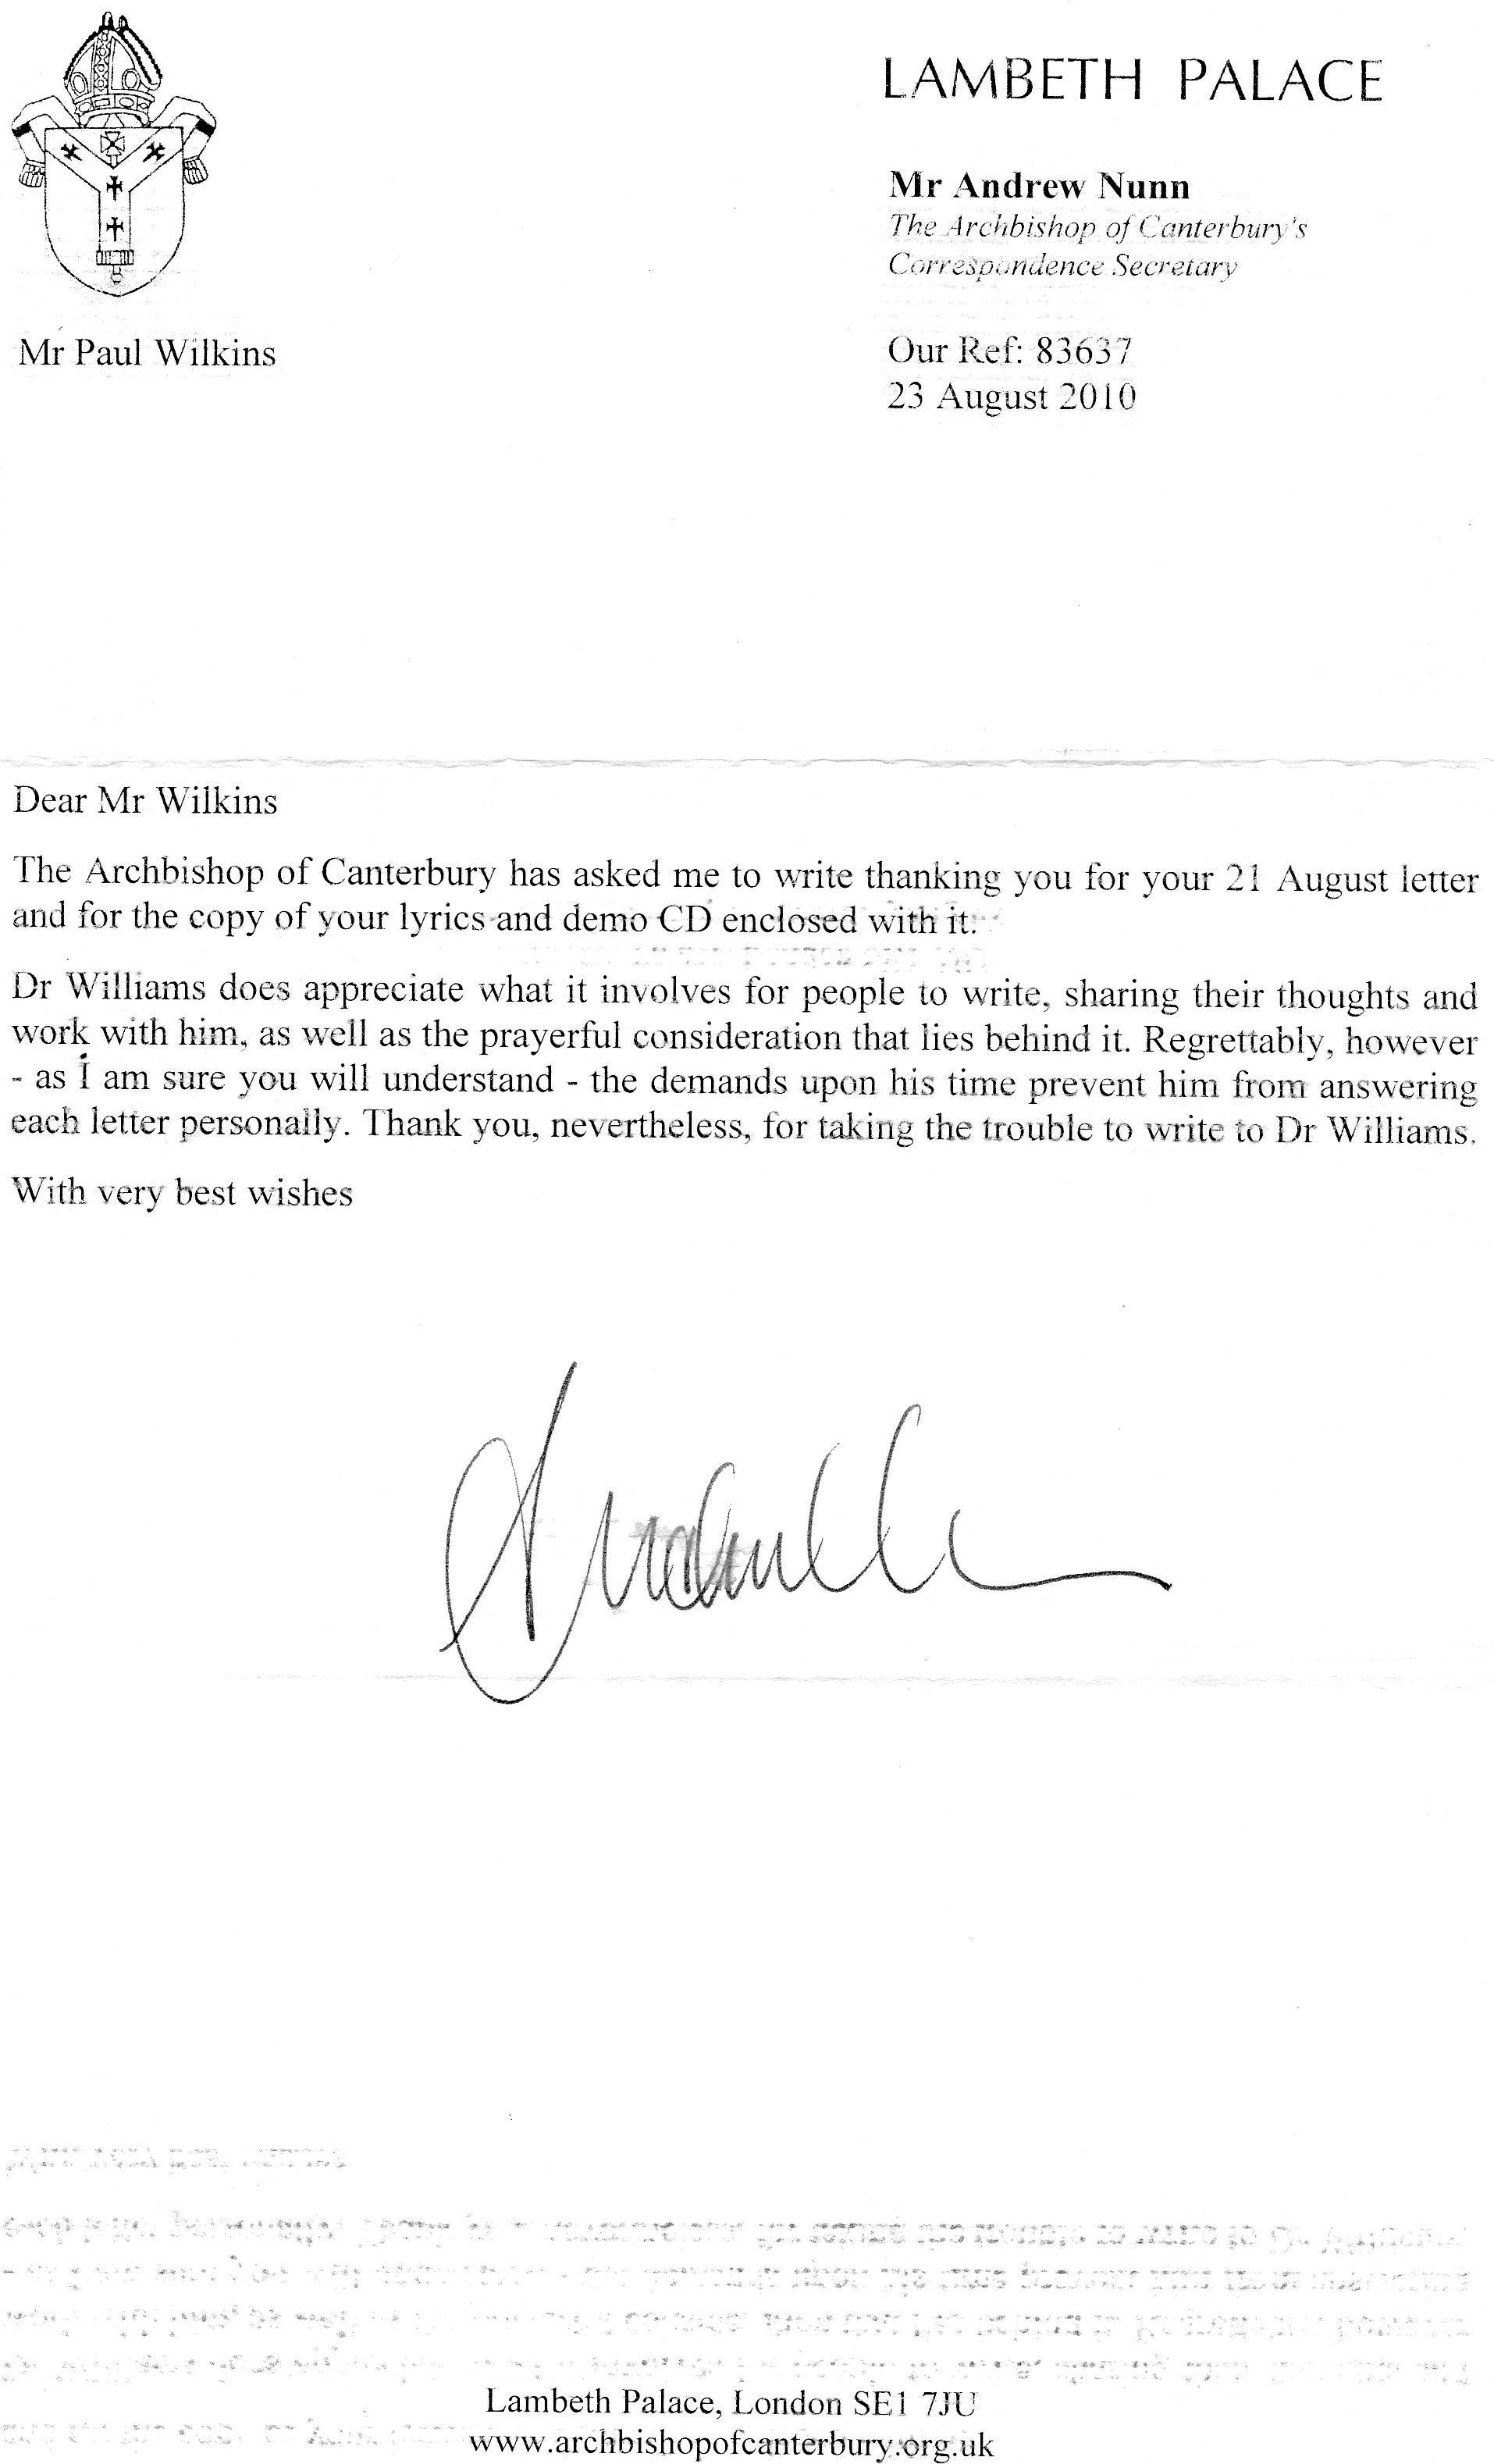 LAMBETH PALACE
Mr Andrew Nunn
The Archbishop of Canterbury's
Correspondence Secretary
Mr Paul Wilkins
Our Ref: 83637
23 August 2010
Dear Mr Wilkins
The Archbishop of Canterbury has asked me to write thanking you for your 21 August letter
and for the copy of your lyrics and demo CD enclosed with it.
Dr Williams does appreciate what it involves for people to write, sharing their thoughts and
work with him, as well as the prayerful consideration that lies behind it. Regrettably, however
- as I am sure you will understand - the demands upon his time prevent him from answering
each letter personally. Thank you, nevertheless, for taking the trouble to write to Dr Williams.
With very best wishes
Lambeth Palace, London SE1 7JU
www.archbishopofcanterbury.org.uk